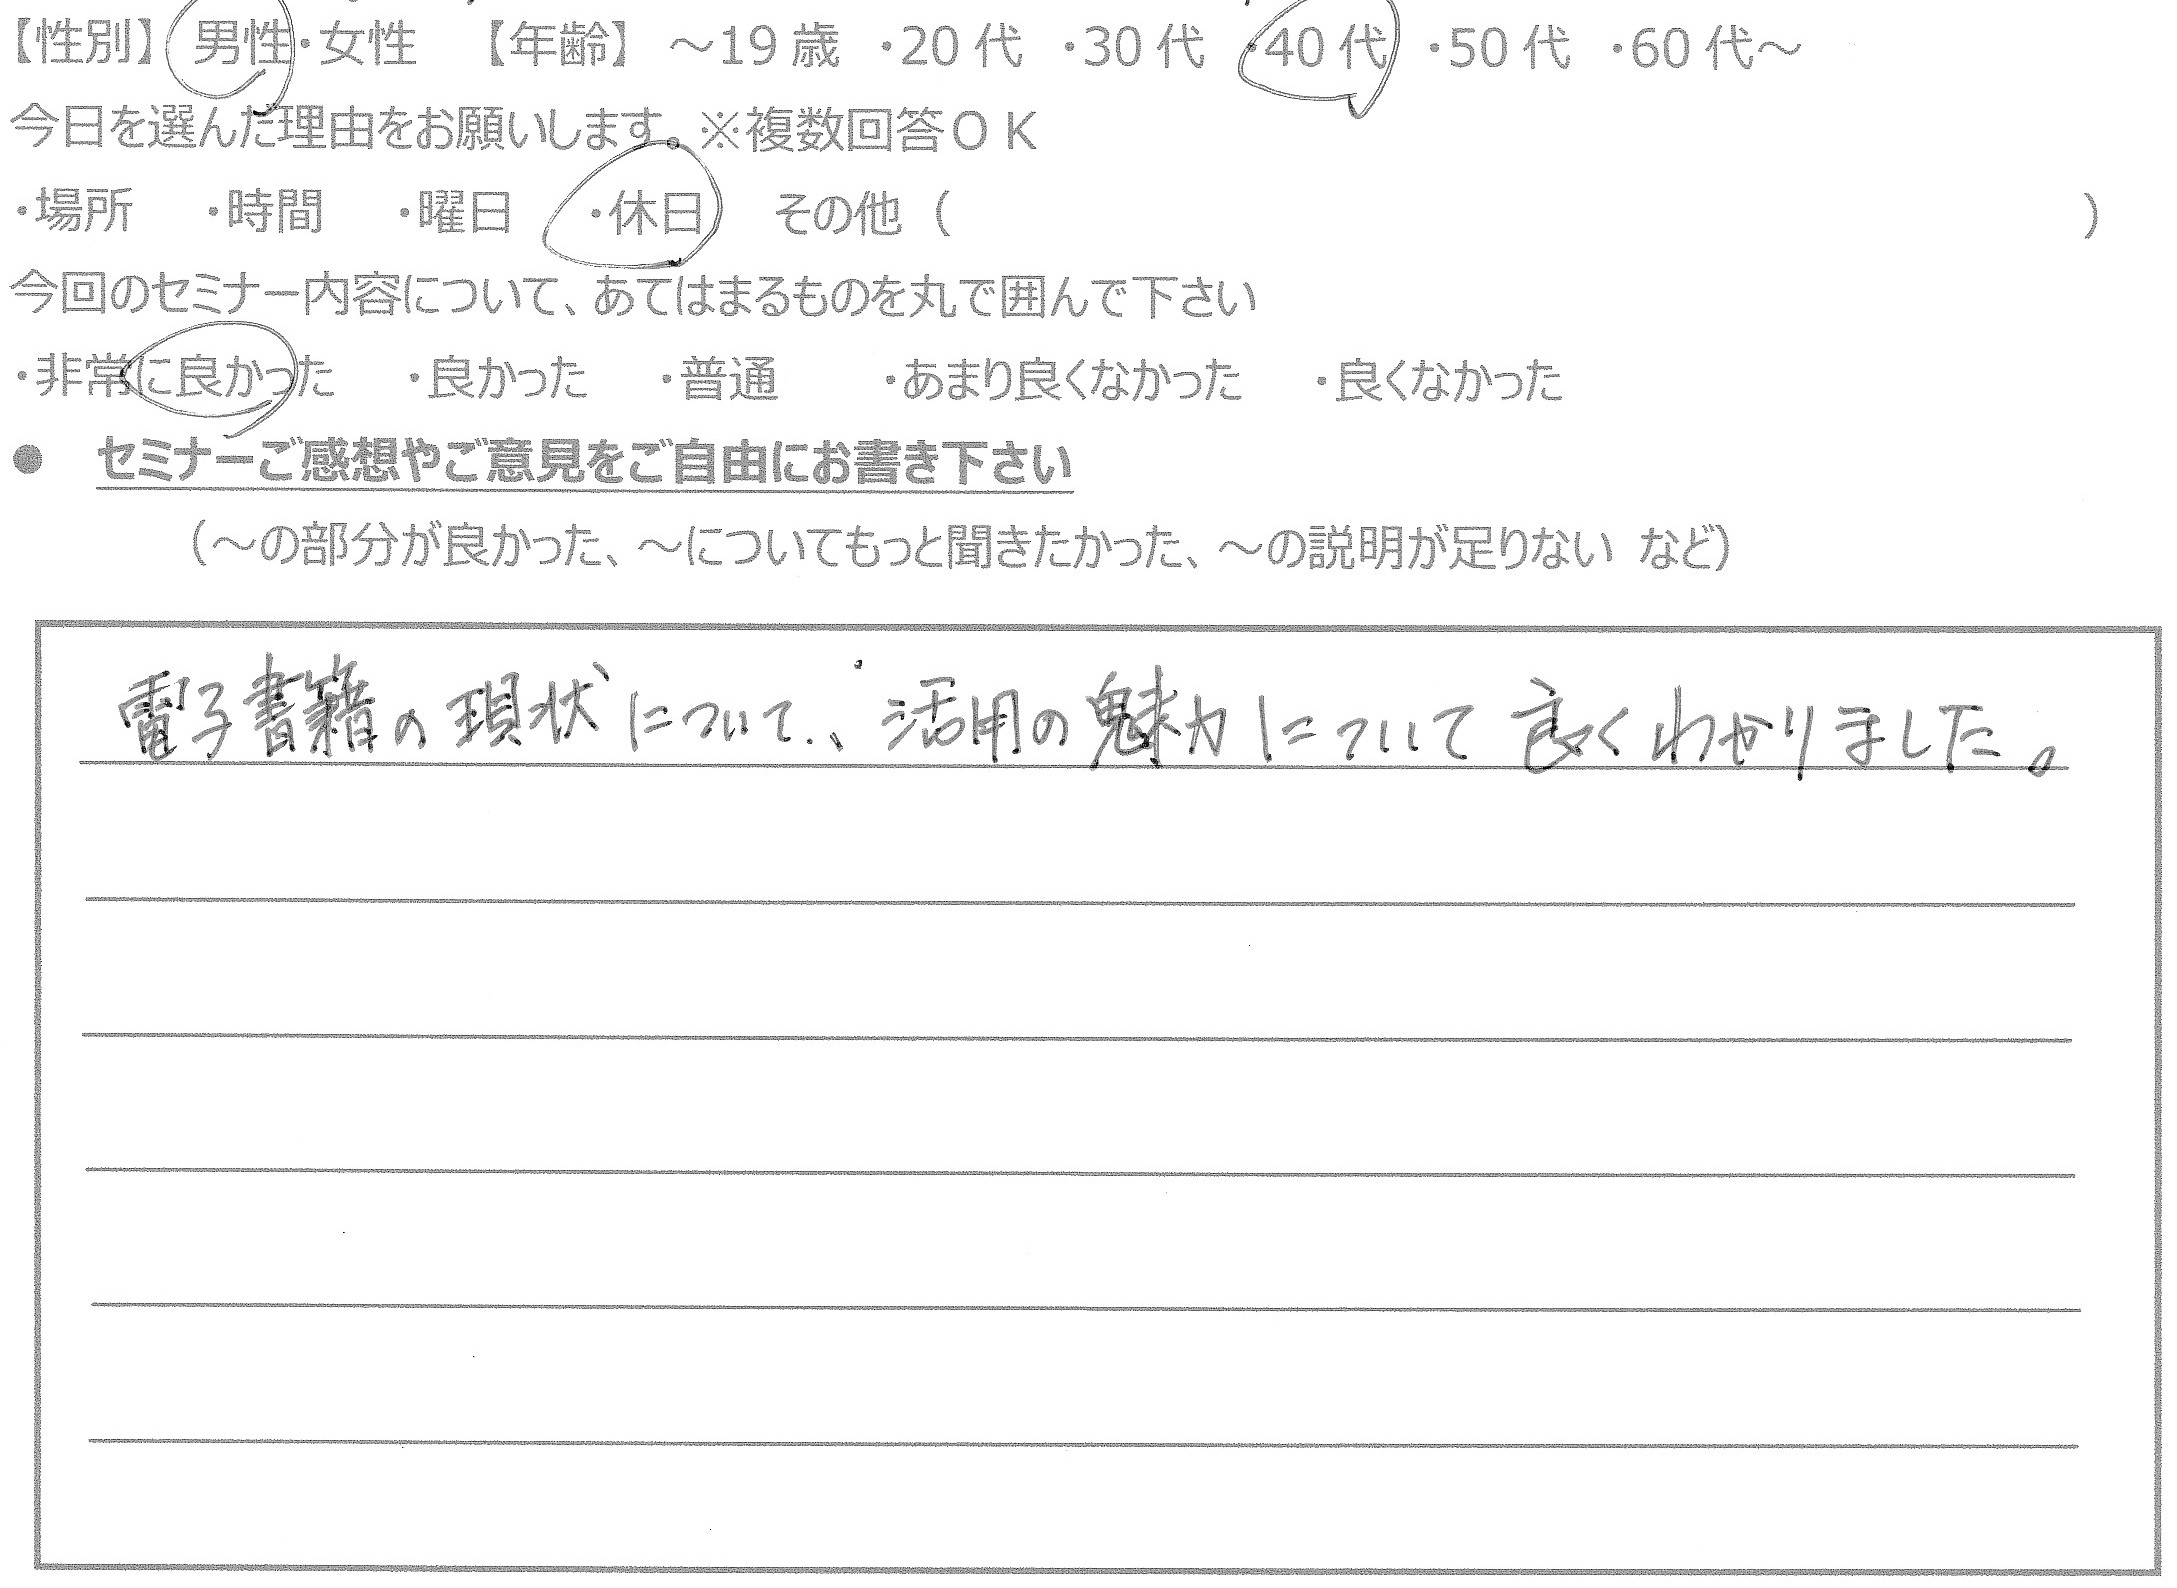 【性別】 男性・女性 【年齢】 ～19 歳 ・20 代 ・30 代 ・40 代 ・50 代 ・60 代～
今日を選んだ理由をお願いします。※複数回答ＯＫ
・場所 ・時間 ・曜日 ・休日 その他（ ）
今回のセミナー内容について、あてはまるものを丸で囲んで下さい
・非常に良かった ・良かった ・普通 ・あまり良くなかった ・良くなかった
● セミナーご感想やご意見をご自由にお書き下さい
（～の部分が良かった、～についてもっと聞きたかった、～の説明が足りない など）
電子書籍の現状について、活用の魅力について良くわかりました。